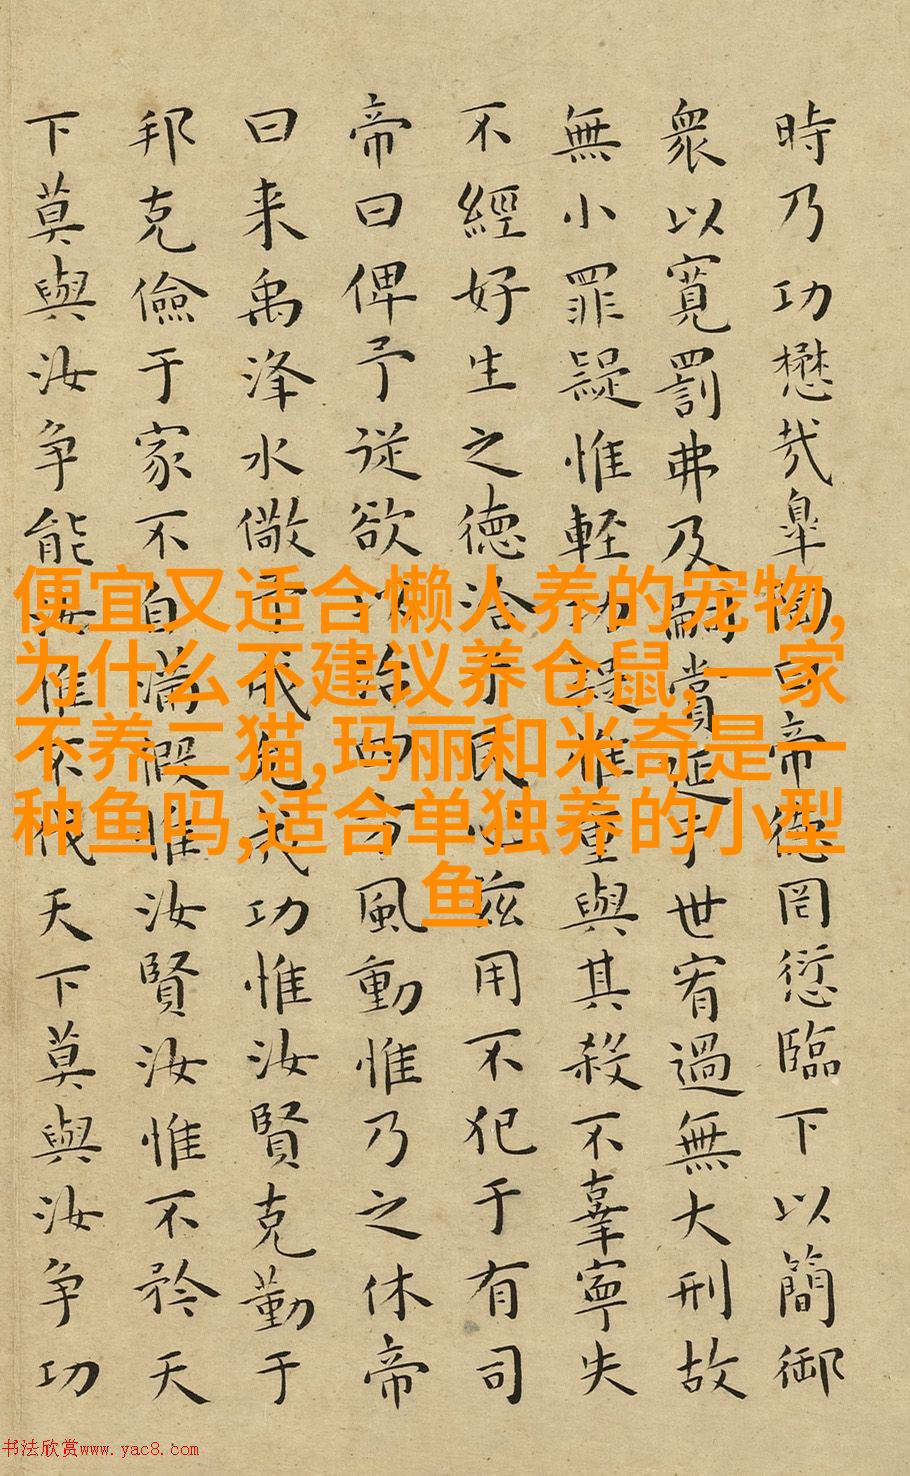 時乃功懋哉皐陶曰帝德罔愆臨下以簡御
衆以寬罰弗及嗣賞延于世宥過無大刑故
無小罪疑惟輕功疑惟重與其殺不辜寧失
不經好生之德洽于民心茲用不犯于有司
帝曰俾予從欲以治四方風動惟乃之休帝
曰来禹洚水儆予成允成功惟汝賢克勤于
邦克儉于家不自滿假惟汝賢汝惟不矜天
下莫與汝争能汝惟不伐天下莫與汝争功
便宜又适合懒人养的宠物,
为什么不建议养仓鼠,一家
不养二猫,玛丽和米奇是一
种鱼吗,适合单独养的小型
鱼
书法欣赏www.yac8.com